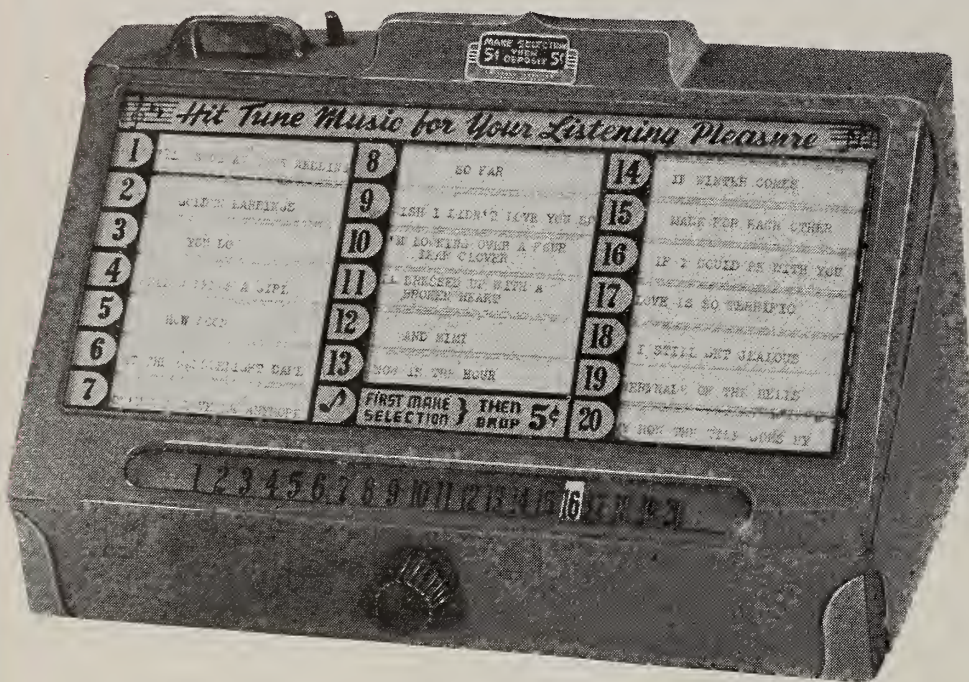 MAKE SELECTION
THEN
5¢ DEPOSIT 5¢
Hit Tune Music for Your Listening Pleasure
1
2
GOLDEN EARRINGS
3
YOU DO
4
A GIRL
5
HOW SOON
6
THE CAFE
7
ANYMORE
8
SO FAR
9
ISH I DIDN'T LOVE YOU SO
10
'M LOOKING OVER A FOUR
LEAF CLOVER
11
LL DRESSED UP WITH A
BROKEN HEART
12
AND MIMI
13
NOW IS THE HOUR
FIRST MAKE
SELECTION } THEN
DROP 5¢
14
IF WINTER COMES
15
MADE FOR EACH OTHER
16
IF I COULD BE WITH YOU
17
LOVE IS SO TERRIFIC
18
I STILL GET JEALOUS
19
OF THE BELLS
20
1 2 3 4 5 6 7 8 9 10 11 12 13 14 15 16 17 18 19 20